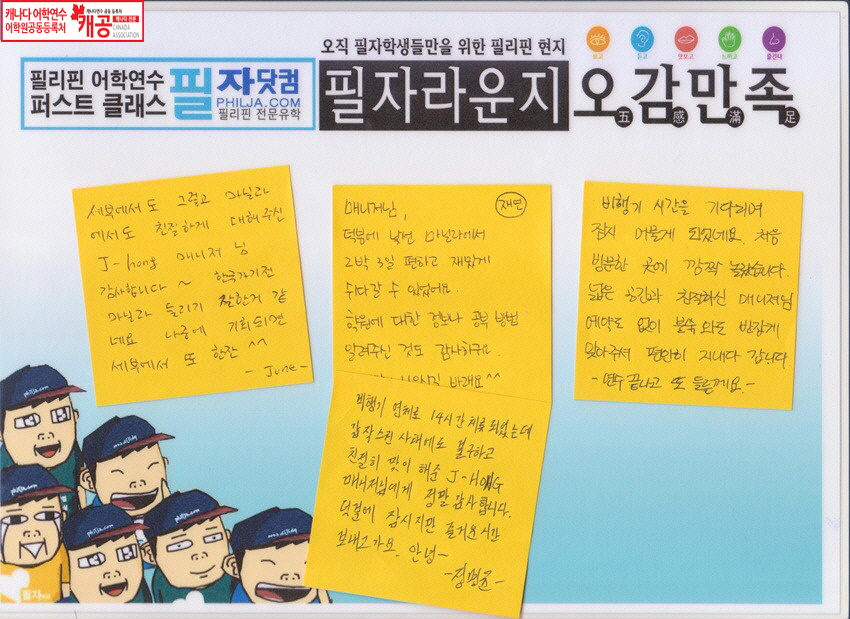 캐나다 어학연수
어학원공동등록처
캐나다연수 공동 등록처
캐공
캐나다 전문
CANADA
ASSOCIATION
필리핀 어학연수
퍼스트 클래스
필자닷컴
PHILJA.COM
필리핀 전문유학
오직 필자학생들만을 위한 필리핀 현지
필자라운지
보고
듣고
맛보고
느끼고
즐긴다
오감만족
五感滿足
세부에서도 그렇고 마닐라
에서도 친절하게 대해주신
J-hong 매니저 님
감사합니다~ 한국가기전
마닐라 들리기 잘한거 같
네요 나중에 기회되면
세부에서 또 한잔 ^^
- June -
매니저님,
재연
덕분에 낯선 마닐라에서
2박 3일 편하고 재밌게
쉬다갈 수 있었어요.
학원에 대한 정보나 공부 방법
알려주신 것도 감사하구요.
바래요^^
비행기 연체로 14시간 체류 되었는데
갑작스런 사태에도 불구하고
친절히 맞이 해준 J-HONG
매니저님에게 정말 감사합니다.
덕분에 잠시지만 즐거운시간
보내고가요. 안녕~
비행기 시간을 기다리며
잠시 머물게 되었네요. 처음
방문한 곳이 깜짝 놀랐습니다.
넓은 공간과 친절하신 매니저님
예약도 없이 불쑥 와도 반갑게
맞아주셔 편안히 지내다 갑니다
- 연수 끝나고 또 들를께요. -
philja.com
philja.com
philja.com
philja.com
필자